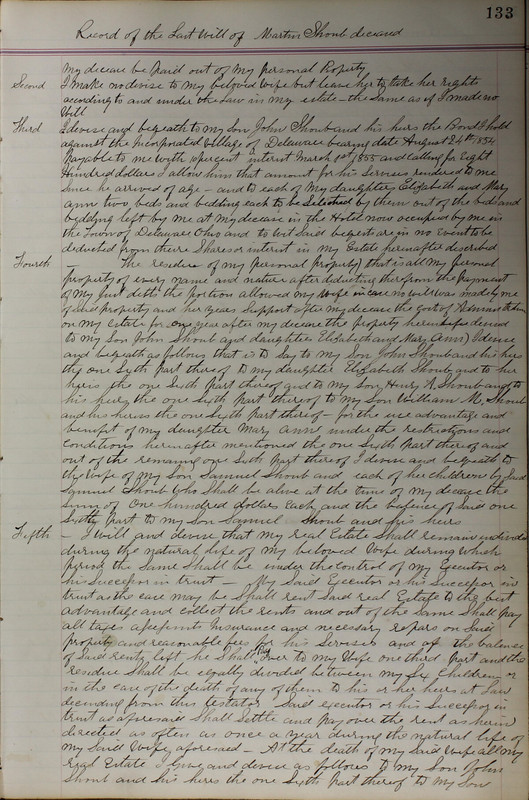 133
Record of the Last Will of Martin Shoub deceased
my decease be paid out of my personal Property
Second I make no devise to my beloved wife but leave her to take her rights
according to and under the Law in my estate - the same as if I made no
Will
Third I devise and beqeath to my Son John Shoub and his heirs the Bond I hold
against the Incorporated Village of Delaware bearing date August 24th 1854
Payable to me with interest March 1855 and calling for Eight
Hundred dollars I allow him that amount for his Services rendered to me
Since he arrived of age - and to each of my daughters Elizabeth and Mary
ann two beds and bedding each to be Selected by them out of the beds and
bedding left by me at my decease in the Hotel now occupied by me in
the Town of Delaware Ohio and to wit Said bequests are in no event to be
deducted from there Shares or interest in my Estate hereinafter described
Fourth The residue of my personal property that is all my personal
property of every name and nature after deducting therefrom the payment
of my Just debts the portion allowed my wife in case no will was made by me
of said property and her years Support after my decease the cost of Administration
on my Estate for one year after my decease the property herein devised
to my Son John Shoub and daughters Elizabeth and Mary Ann) I devise
and beqeath as follows that is to Say to my Son John Shoub and his heirs
the one Sixth part thereof to my daughter Elizabeth Shoub and to her
heirs the one Sixth part thereof and to my Son Henry A Shoub and to
his heirs the one Sixth part thereof to my Son William M. Shoub
and his heirs the one Sixth part thereof - for the use advantage and
benifit of my daughter Mary Ann under the restrictions and
conditions hereinafter mentioned the one Sixth part thereof and
out of the remaining one Sixth part thereof I devise and beqeath to
the Wife of my Son Samuel Shoub and each of her children by Said
Samuel Shoub who Shall be alive at the time of my decease the
Sum of One hundred dollars Each and the balence of Said one
Sixth part to my Son Samuel Shoub and his heirs
Fifth - I will and devise that my real Estate Shall remain undivided
during the natural life of my beloved Wife during which
period the Same Shall be under the control of my Executor or
his Successor in trust - My Said Executor or his Successor in
trust as the case may be Shall rent Said real Estate to the best
advantage and collect the rents and out of the Same Shall pay
all taxes assesments Insurance and necessary repars on Said
property and reasonable fees for his Services and of the balance
of Said rents left he Shall Pay over to my Wife one third part and the
residue Shall be eqally divided between my Six Children or
in the case of the death of any of them to his or her heirs at Law
decending from this testator Said executor or his Successor in
trust as aforesaid Shall Settle and pay over the rent as herein
directed as often as once a year during the natural life of
my Said Wife aforesaid - At the death of my Said Wife all my
real Estate I give and devise as follows to my Son John
Shoub and his heirs the one Sixth part thereof to my Son